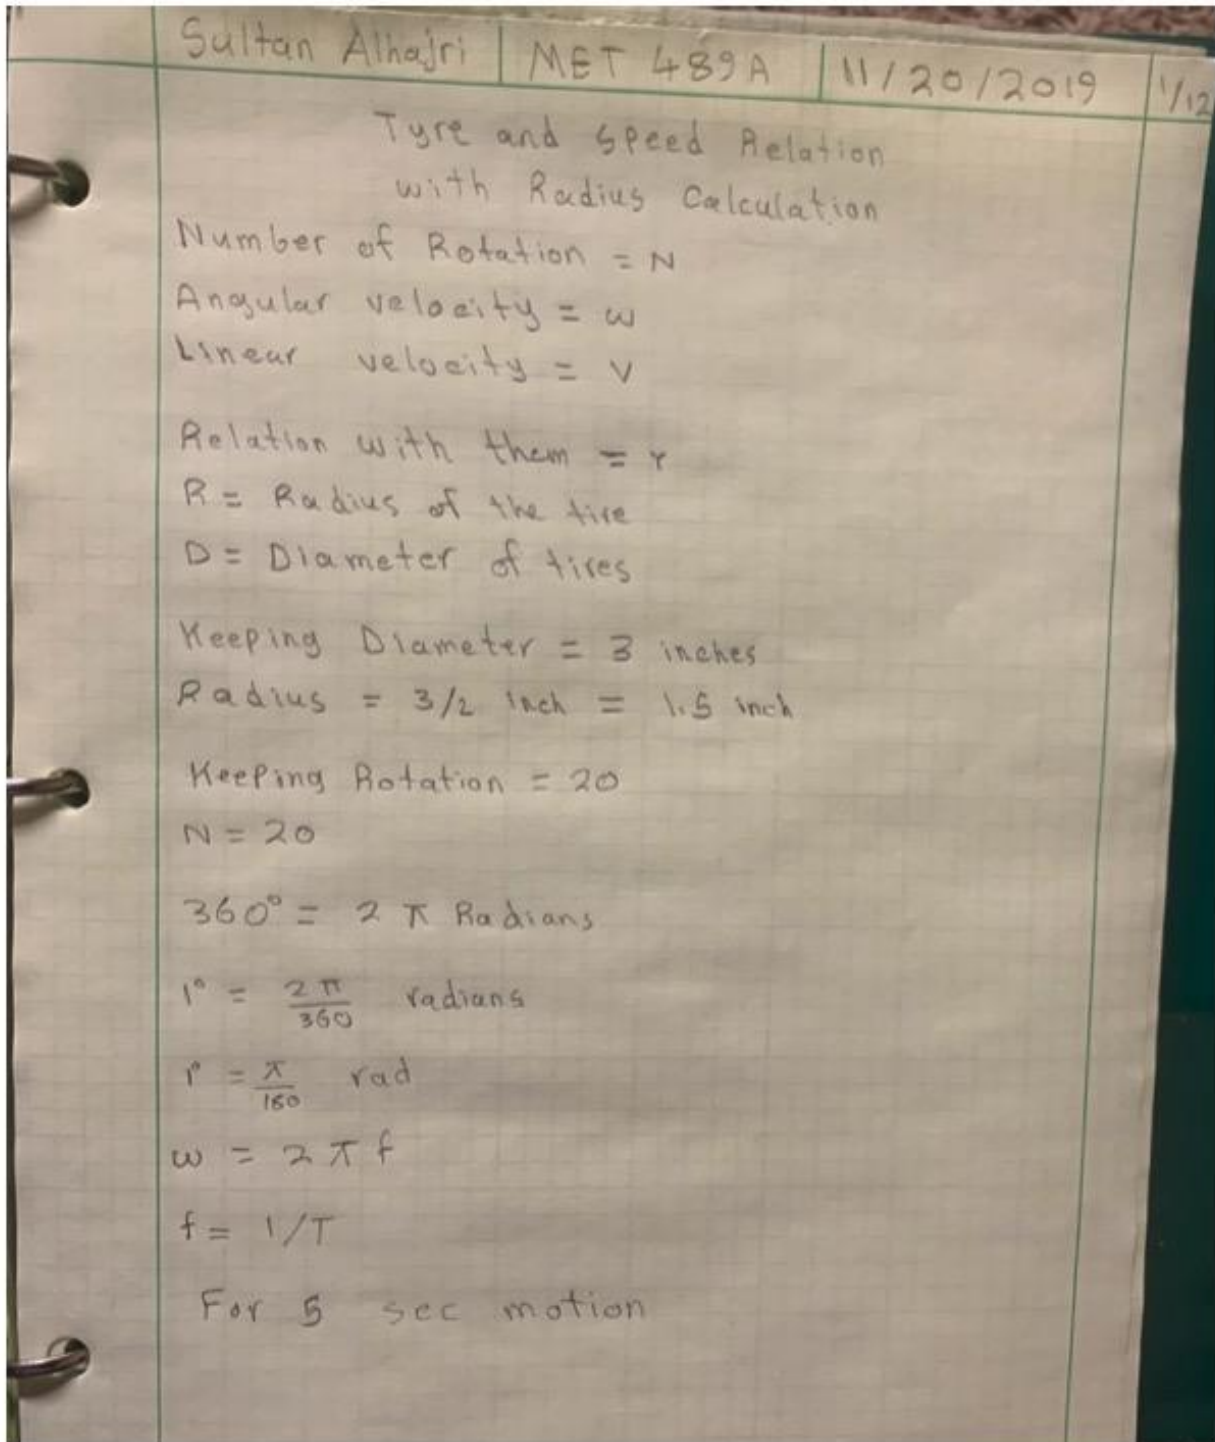 Sultan Alhajri | MET 489A | 11/20/2019 | 1/12
Tyre and Speed Relation
with Radius Calculation
Number of Rotation = N
Angular velocity = ω
Linear velocity = V
Relation with them = r
R = Radius of the tire
D = Diameter of tires
Keeping Diameter = 3 inches
Radius = 3/2 inch = 1.5 inch
Keeping Rotation = 20
N = 20
360° = 2 π Radians
1° = 2π/360 radians
1° = π/180 rad
ω = 2 π f
f = 1/T
For 5 sec motion